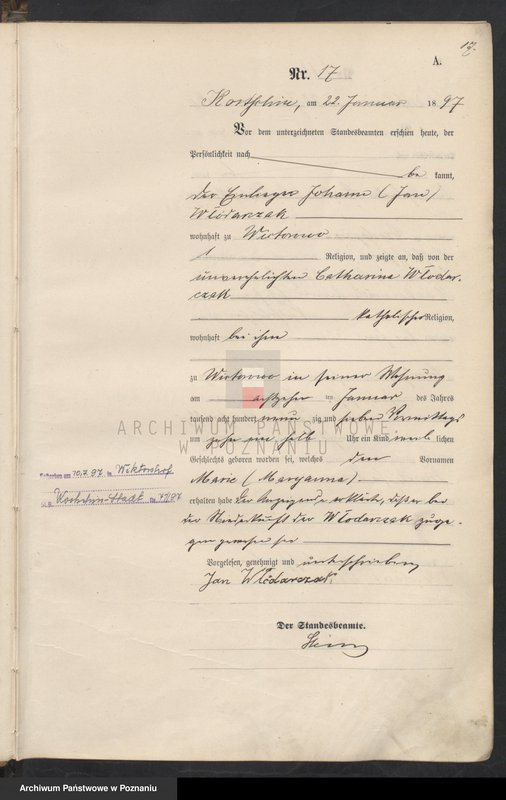 17.
A.
Nr. 17
am 22. Januar 1897
Vor dem unterzeichneten Standesbeamten erschien heute, der
Persönlichkeit nach
be kannt,
der Einlieger Johann (Jan)
Włodarczak
wohnhaft zu Wiktorowo
Religion, und zeigte an, daß von der
unverehelichten Catharina Włodar-
czak
katholischer Religion,
wohnhaft bei ihm
zu Wiktorowo in seiner Wohnung
am achtzehn ten Januar des Jahres
tausend acht hundert neun zig und sieben Vormittags
um zehn ein halb Uhr ein Kind weib lichen
Geschlechts geboren worden sei, welches den Vornamen
Marie (Maryanna)
erhalten habe. Der Anzeigende erklärte, daß er bei
der Niederkunft der Włodarczak zuge-
gen gewesen sei
Vorgelesen, genehmigt und unterschrieben
Jan Włodarczak
Der Standesbeamte.
Gestorben am 10.7.97 in Wiktorshof
Kosten-Stadt 47/97
ARCHIWUM PAŃSTWOWE
W POZNANIU
Archiwum Państwowe w Poznaniu